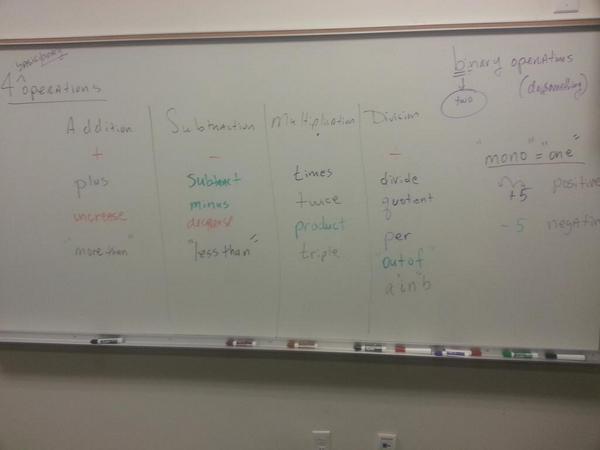 basic binary
4 ^ operations
Addition
+
plus
increase
"more than"
Subtraction
−
Subtract
minus
decrease
"less than"
Multiplication
•
times
twice
product
triple
Division
÷
divide
quotient
per
"out of"
a "in" b
binary operations
two
(do something)
"mono" = "one"
+5 positive
-5 negative